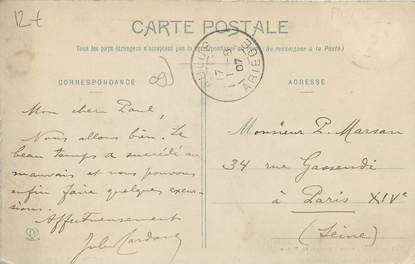 12 f
CARTE POSTALE
Tous les pays étrangers n'acceptent pas la correspondance au recto (Se renseigner à la Poste)
CORRESPONDANCE
ADRESSE
17 1-8 07
ARIEGE
Mon cher Paul,
Nous allons bien. Le
beau temps a succédé au
mauvais et nous pouvons
enfin faire quelques excur-
sions.
Affectueusement
Jules
Monsieur P. Marsan
34 rue Gassendi
à Paris XIVe
(Seine)